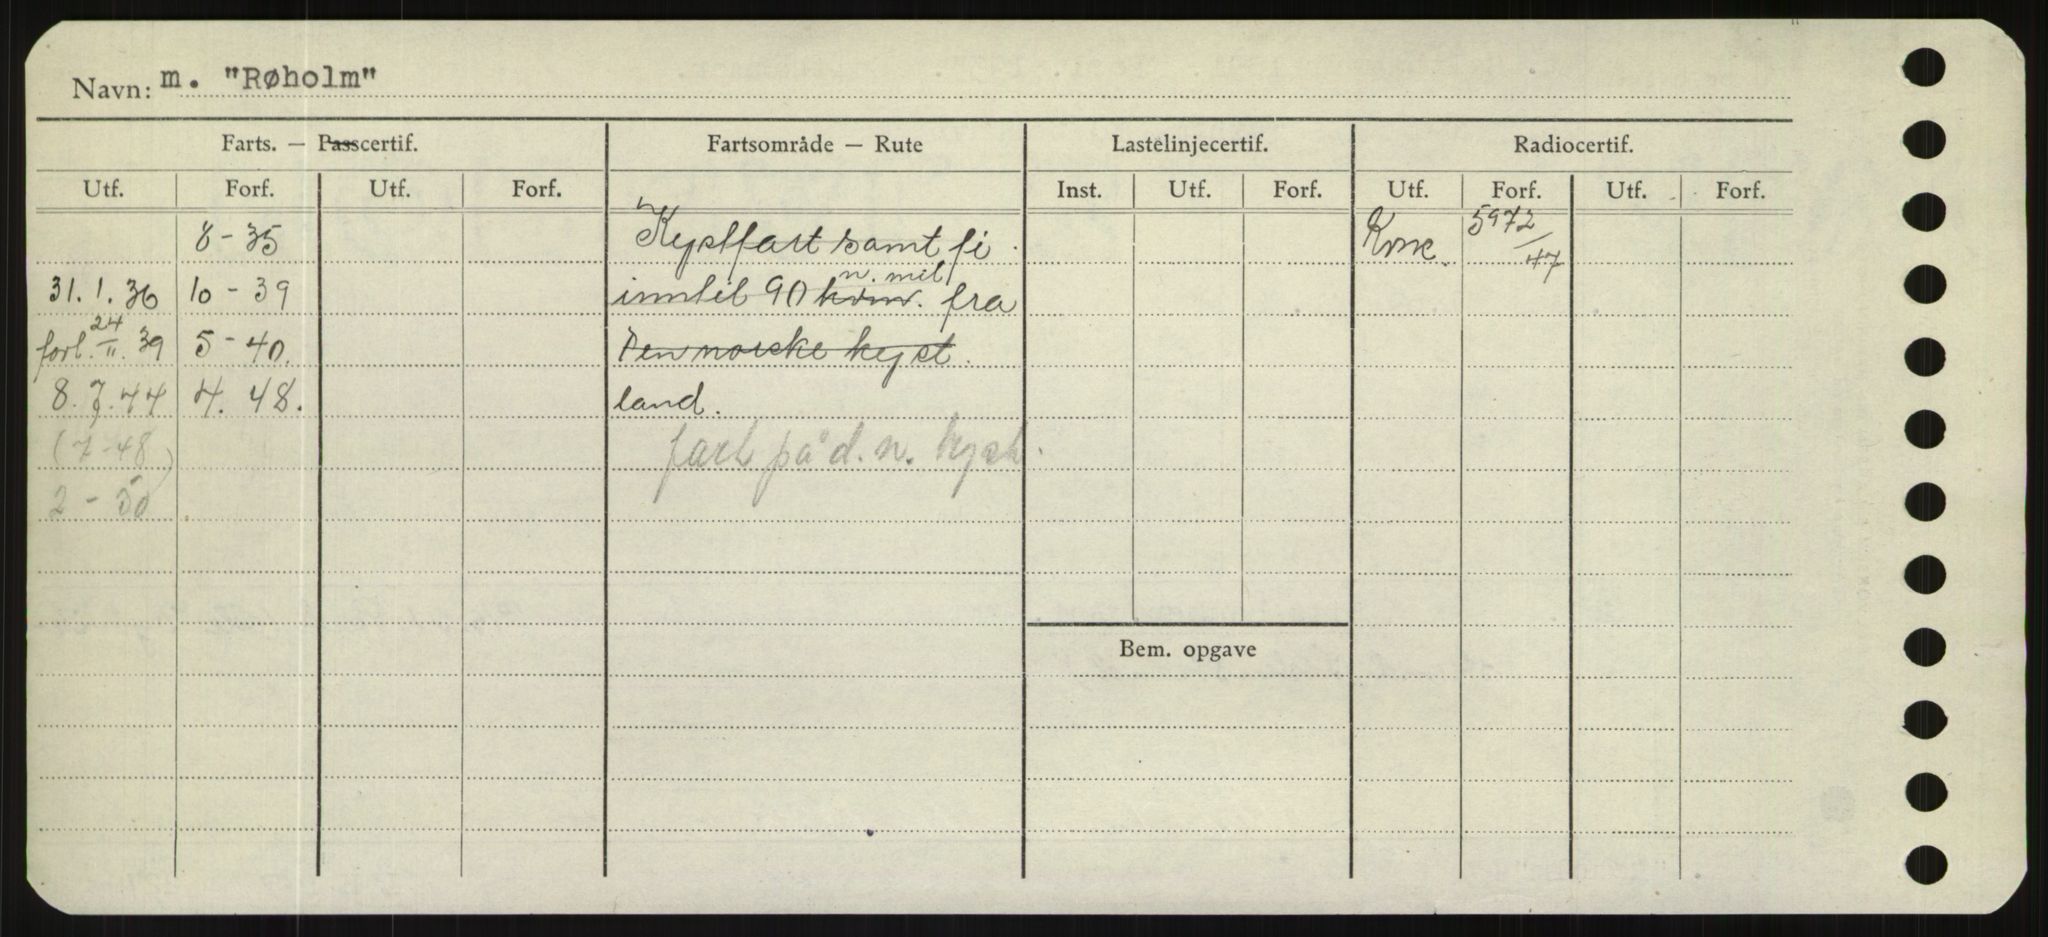 Navn: m. "Røholm"
Farts. — Passcertif. Fartsområde — Rute Lastelinjecertif. Radiocertif.
Utf. Forf. Utf. Forf. Inst. Utf. Forf. Utf. Forf. Utf. Forf.
8-35 Kystfart samt fi 5972/47
n. mil
31.1.36 10-39 inntil 90 kvm. fra
24
forl. II. 39 5-40. Den norske kyst.
8.7.44 4.48. land.
(7-48) fart på d. n. kyst.
2-50
Bem. opgave